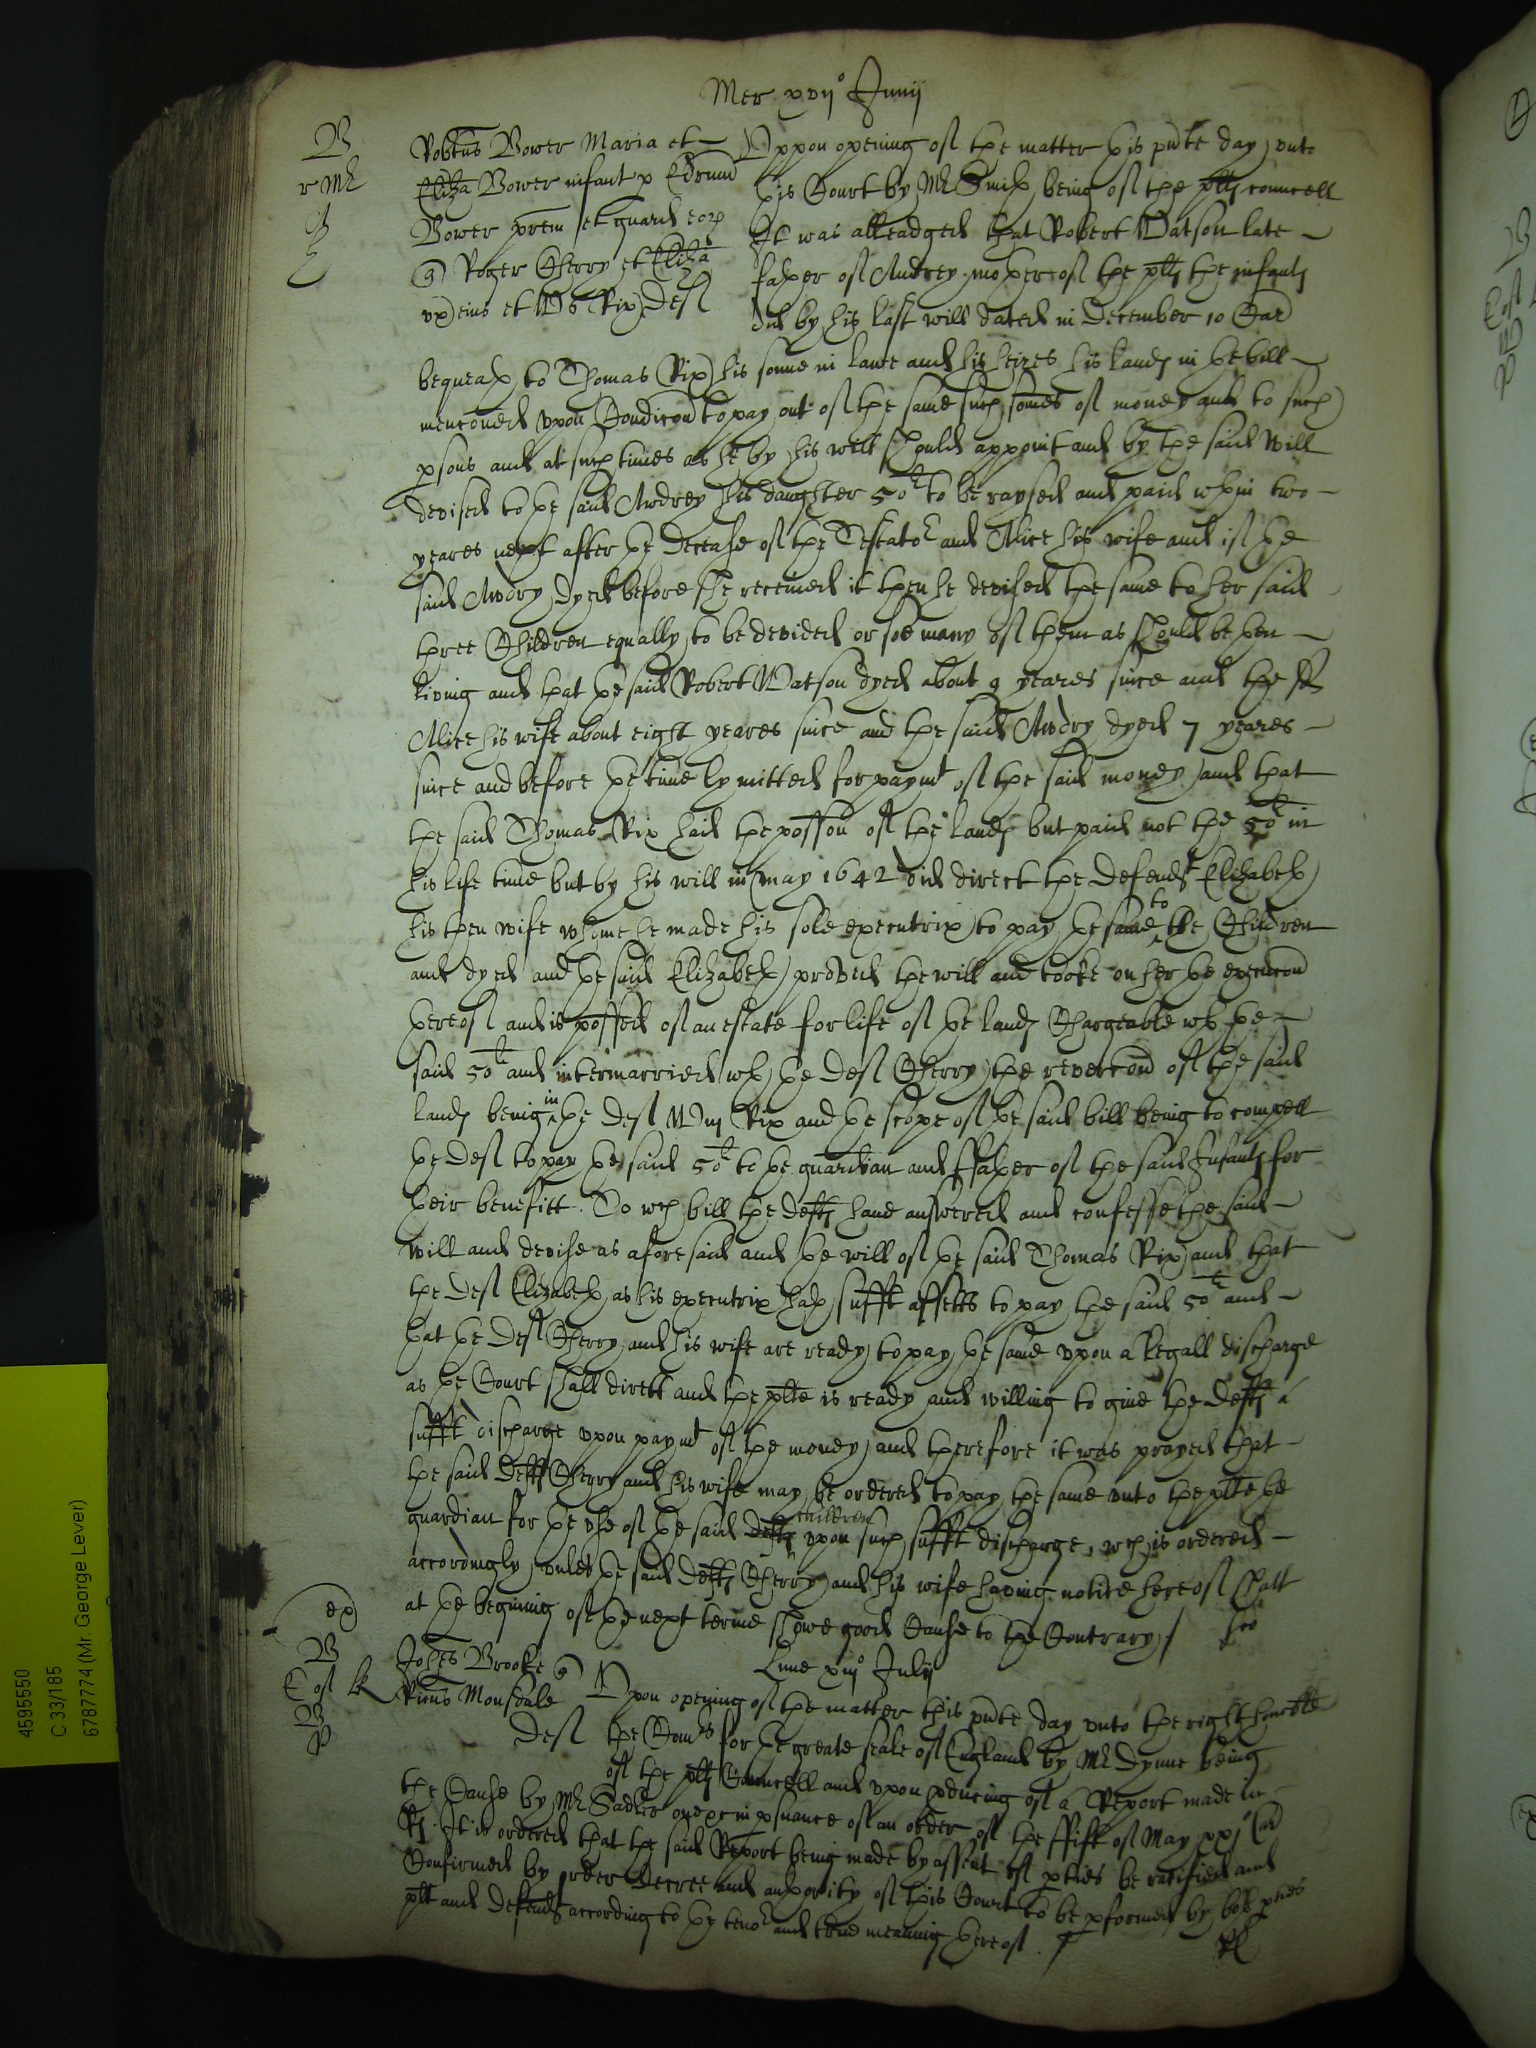 Mer xvij° Junij
B
r Mr
J
E
Robtus Bower Maria et
Eliza Bower infant p Edmund
Bower prem et guard eor
Roger Cherry et Eliza
ux eius et Wm Rix Def
Uppon opening of the matter this pnte day unto
this Court by Mr Smith being of the plts councell
It was alleadged that Robert Watson late
father of Awdrey mother of the plts the infants
did by his last will dated in December 10 Car
bequeath to Thomas Rix his sonne in lawe and his heires his lands in the bill
menconed upon Condicon to pay out of the same such somes of money and to such
psons and at such times as he by his will should appoint and by the said Will
devised to the said Awdrey his daughter 50l to be raysed and paid wthin two
yeares next after the decease of the Testator and Alice his wife and if the
said Awdry dyed before she received it then he devised the same to her said
three Children equally to be devided or soe many of them as should be then
living and that the said Robert Watson dyed about 9 yeares since and the sd
Alice his wife about eight yeares since and the said Awdry dyed 7 yeares
since and before the time lymitted for paymt of the said money and that
the said Thomas Rix had the posson of the lands but paid not the 50l in
his life time but by his will in May 1642 did direct the Defendt Elizabeth
his then wife whome he made his sole executrix to pay the same to the Children
and dyed and the said Elizabeth proved the will and tooke on her the execucon
thereof and is possed of an estate for life of the lands Chargeable wth the
said 50l and intermarried wth the Def Cherry the revercon of the said
lands being in the Def Wm Rix and the scope of the said bill being to compell
the Def to pay the said 50l to the guardian and ffather of the said Infants for
their benefitt. To wch bill the defts have answered and confesse the said
will and devise as aforesaid and the will of the said Thomas Rix and that
the Def Elizabeth as his executrix hath sufft assetts to pay the said 50l and
that the Def Cherry and his wife are ready to pay the same upon a legall discharge
as the Court shall direct and the plte is ready and willing to give the defts a
sufft discharge upon paymt of the money and therefore it was prayed that
the said Deft Cherry and his wife may be ordered to pay the same unto the plte the
guardian for the use of the said children upon such sufft discharge, wch is ordered
accordingly unles the said defts Cherry and his wife having notice hereof shall
at the begining of the next terme shewe good Cause to the Contrary
ex
B
Cost
Johes Brooke
Ricus Monsdale
Def
Lune xiij° Julij
Upon opening of the matter this pnte day unto the right honoble
the Comrs for the greate seale of England by Mr Dynne being
of the plts Councell and upon pducing of a Report made in
the Cause by Mr Sadler one xc in psuance of an order of the ffift of May xxj° Car
R. It is ordered that the said Report being made by assent of pties be ratified and
Confirmed by order decree and authority of this Court to be pformed by both pties
plt and defendt according to the tenor and true meaning thereof.
4595550
C 33/185
6787774 (Mr. George Lever)